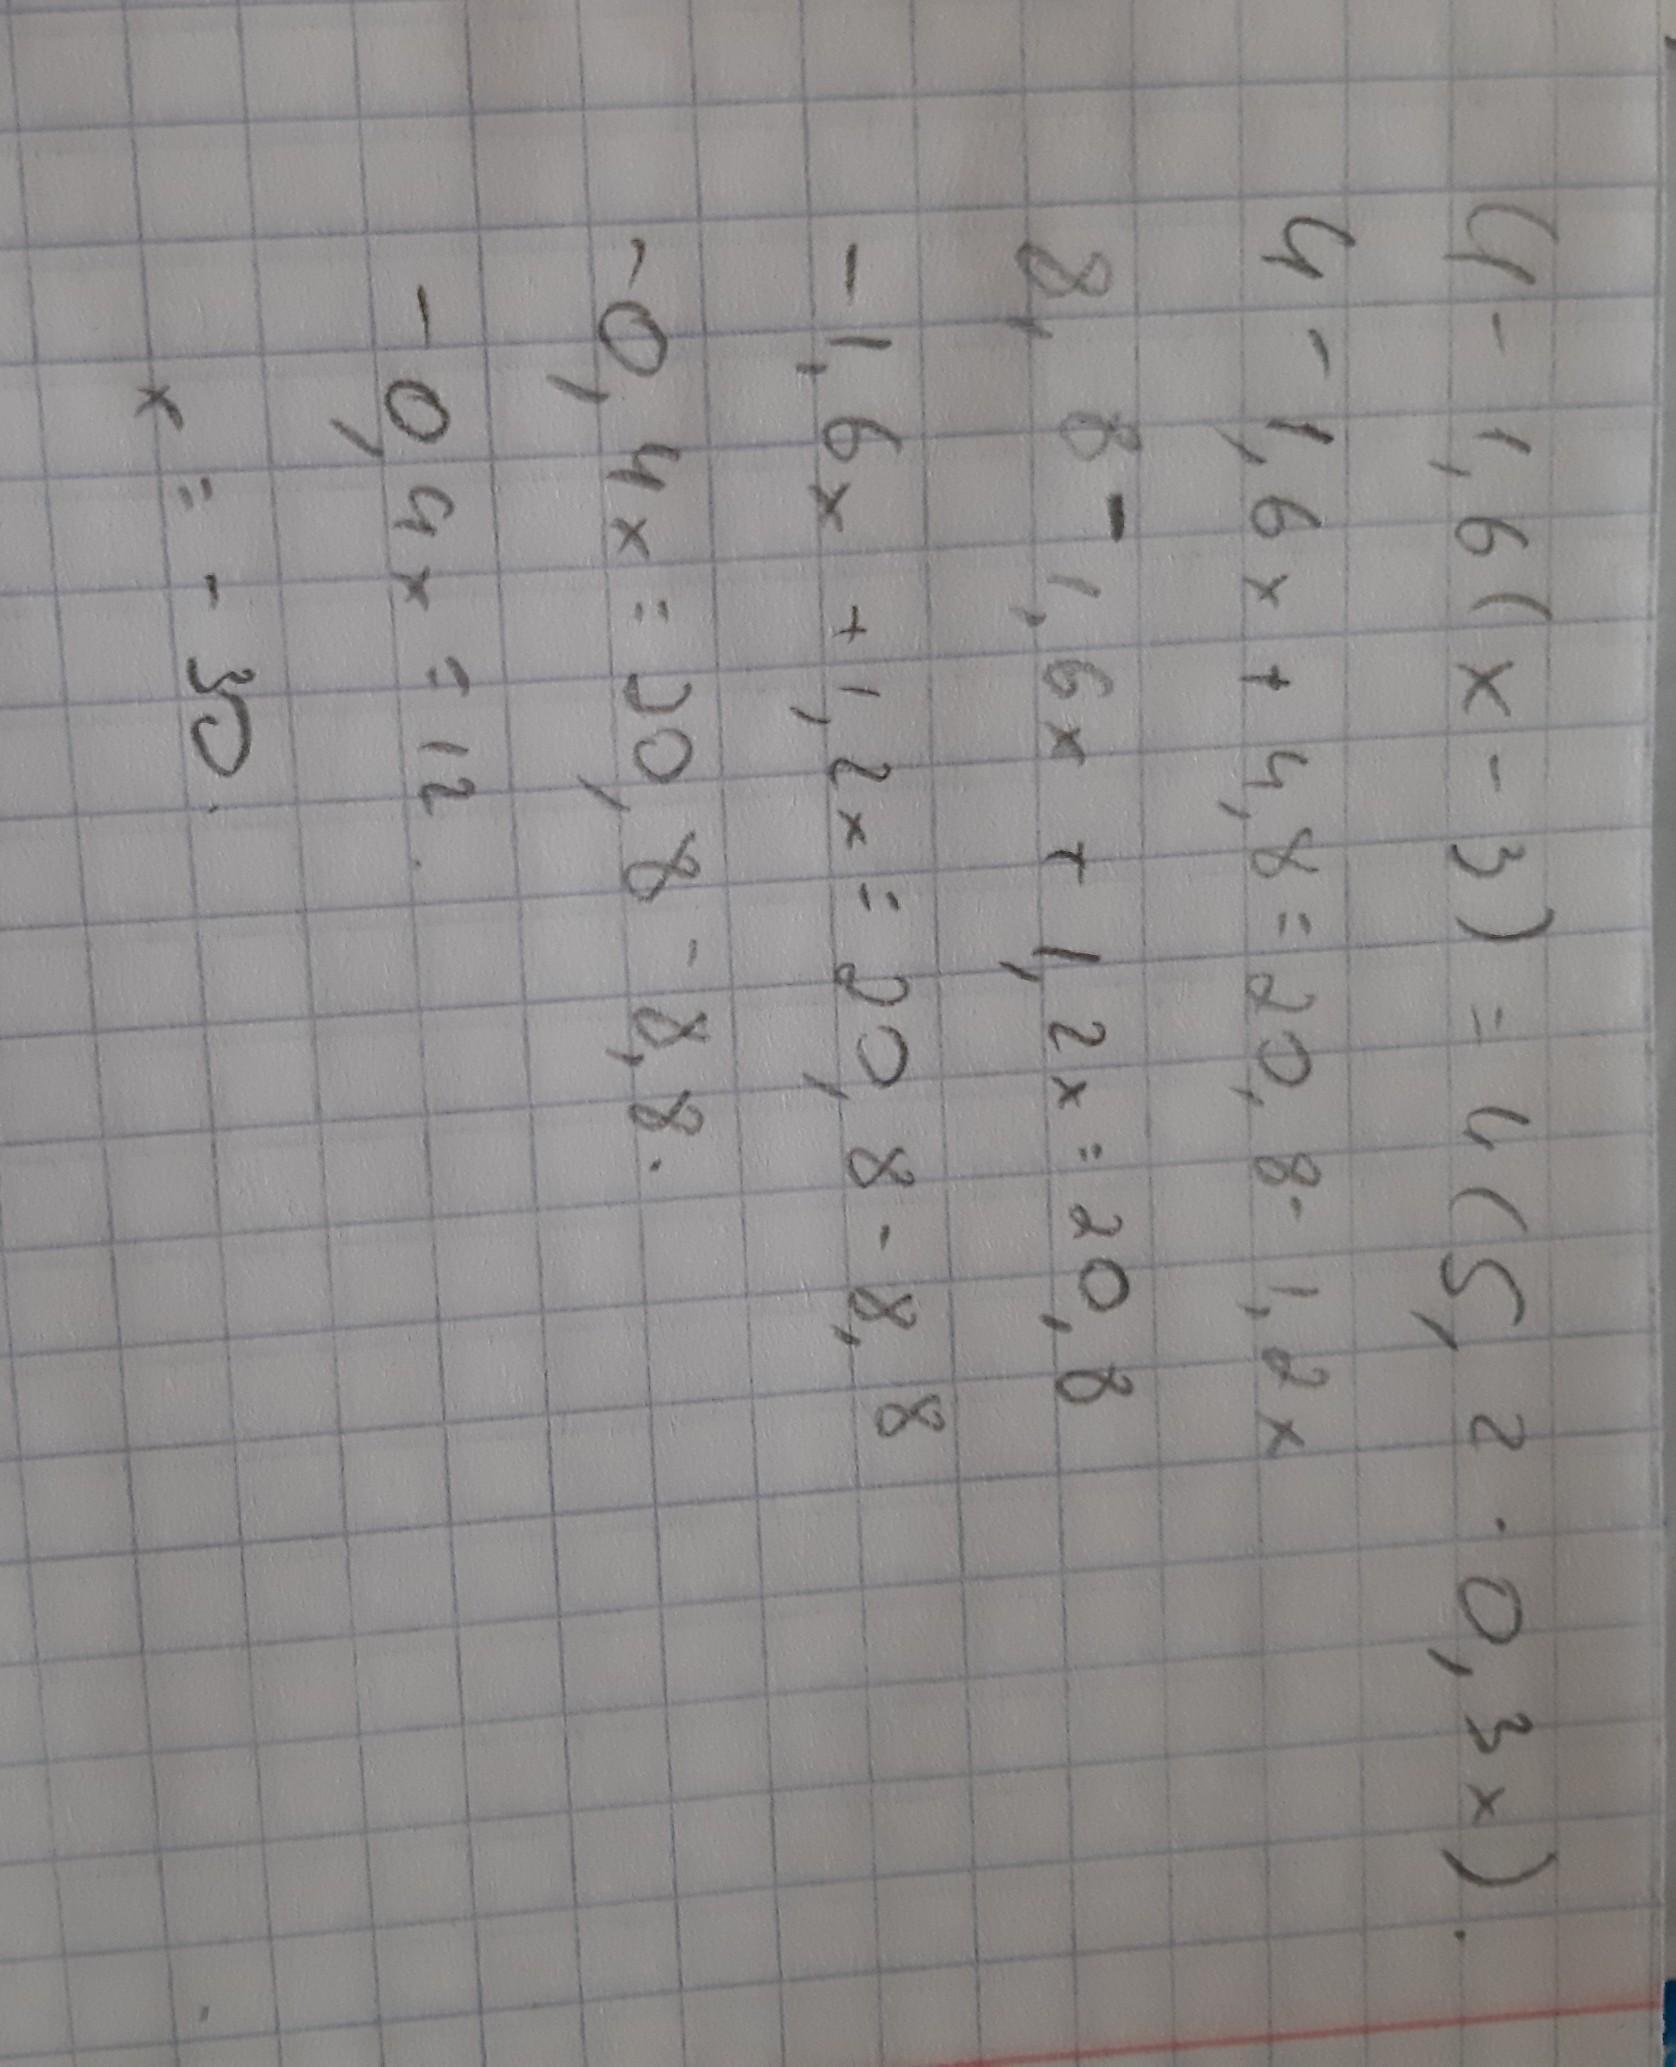 4 - 1,6(x - 3) = 4(5,2 · 0,3x).
4 - 1,6x + 4,8 = 20,8 - 1,2x
8,8 - 1,6x + 1,2x = 20,8
- 1,6x + 1,2x = 20,8 - 8,8
- 0,4x = 20,8 - 8,8.
- 0,4x = 12.
x = - 30.